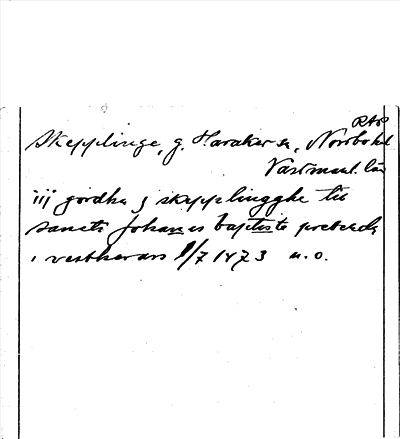 RAP
Skepplinge, g. Haraker sn, Norrbo hd
Västmanl. län
iij gordha j skepplingghe til
sancti Johannis baptiste prebenda
i vestheraars 1/7 1473 u.o.